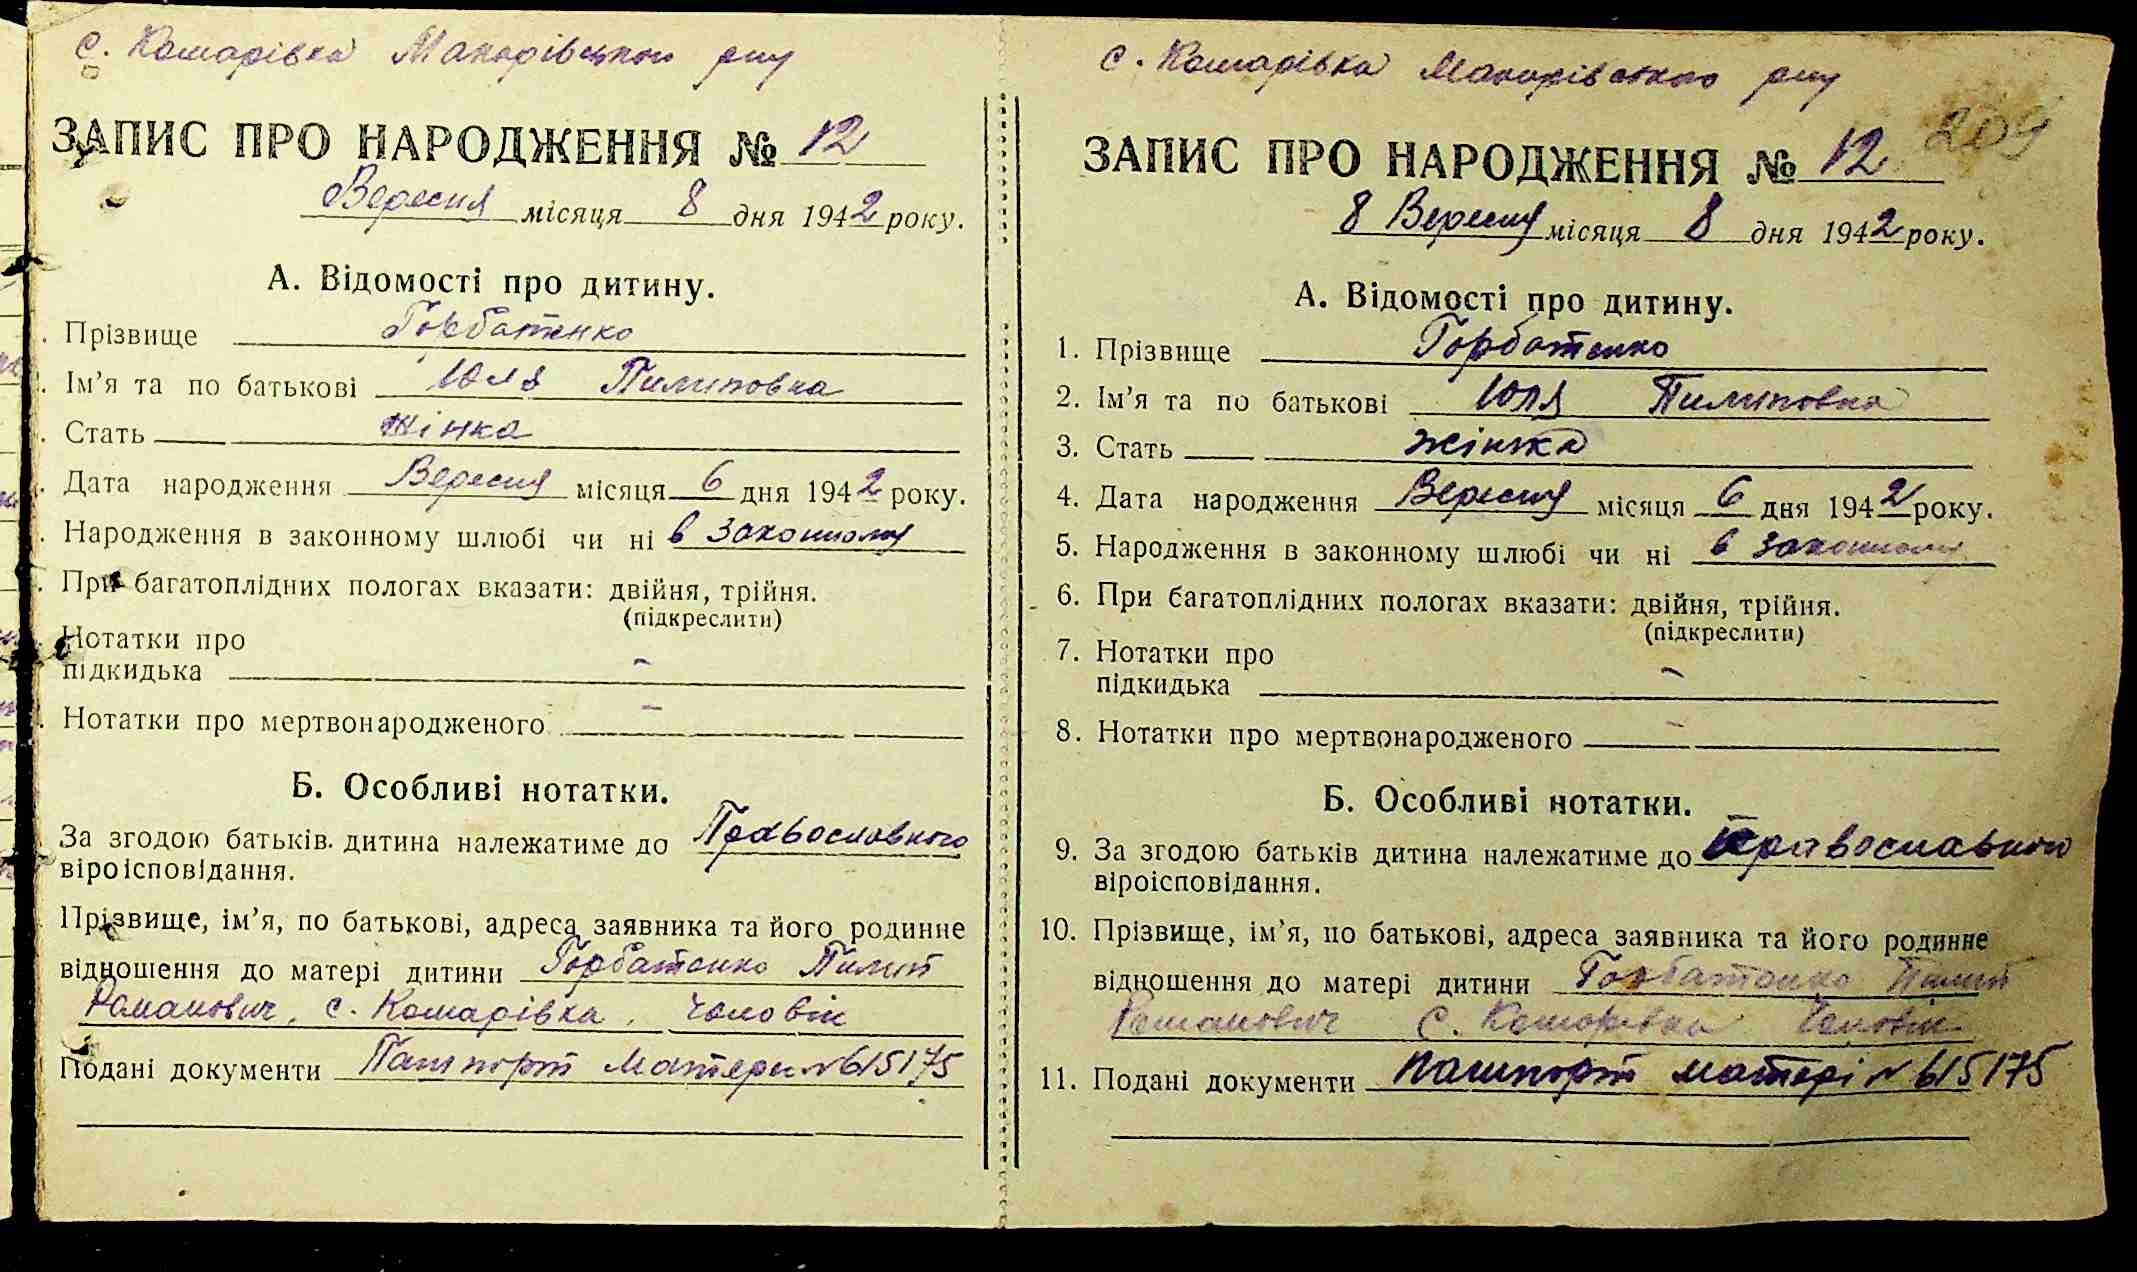 с. Комарівка Макарівського р-ну
ЗАПИС ПРО НАРОДЖЕННЯ № 12
Вересня місяця 8 дня 1942 року.
А. Відомості про дитину.
Прізвище Горбатенко
Ім'я та по батькові Юля Пилиповна
Стать жінка
Дата народження Вересня місяця 6 дня 1942 року.
Народження в законному шлюбі чи ні в законному
При багатоплідних пологах вказати: двійня, трійня.
(підкреслити)
Нотатки про
підкидька -
Нотатки про мертвонародженого -
Б. Особливі нотатки.
За згодою батьків дитина належатиме до Православного
віроісповідання.
Прізвище, ім'я, по батькові, адреса заявника та його родинне
відношення до матері дитини Горбатенко Пилип
Романович, с. Комарівка, чоловік
Подані документи Пашпорт Матери № 615175
с. Комарівка Макарівського р-ну
209
ЗАПИС ПРО НАРОДЖЕННЯ № 12
8 Вересня місяця 8 дня 1942 року.
А. Відомості про дитину.
1. Прізвище Горбатенко
2. Ім'я та по батькові Юля Пилиповна
3. Стать жінка
4. Дата народження Вересня місяця 6 дня 1942 року.
5. Народження в законному шлюбі чи ні в законному
6. При багатоплідних пологах вказати: двійня, трійня.
(підкреслити)
7. Нотатки про
підкидька -
8. Нотатки про мертвонародженого -
Б. Особливі нотатки.
9. За згодою батьків дитина належатиме до православного
віроісповідання.
10. Прізвище, ім'я, по батькові, адреса заявника та його родинне
відношення до матері дитини Горбатенко Пилип
Романович с. Комарівка Чоловік
11. Подані документи пашпорт матері № 615175